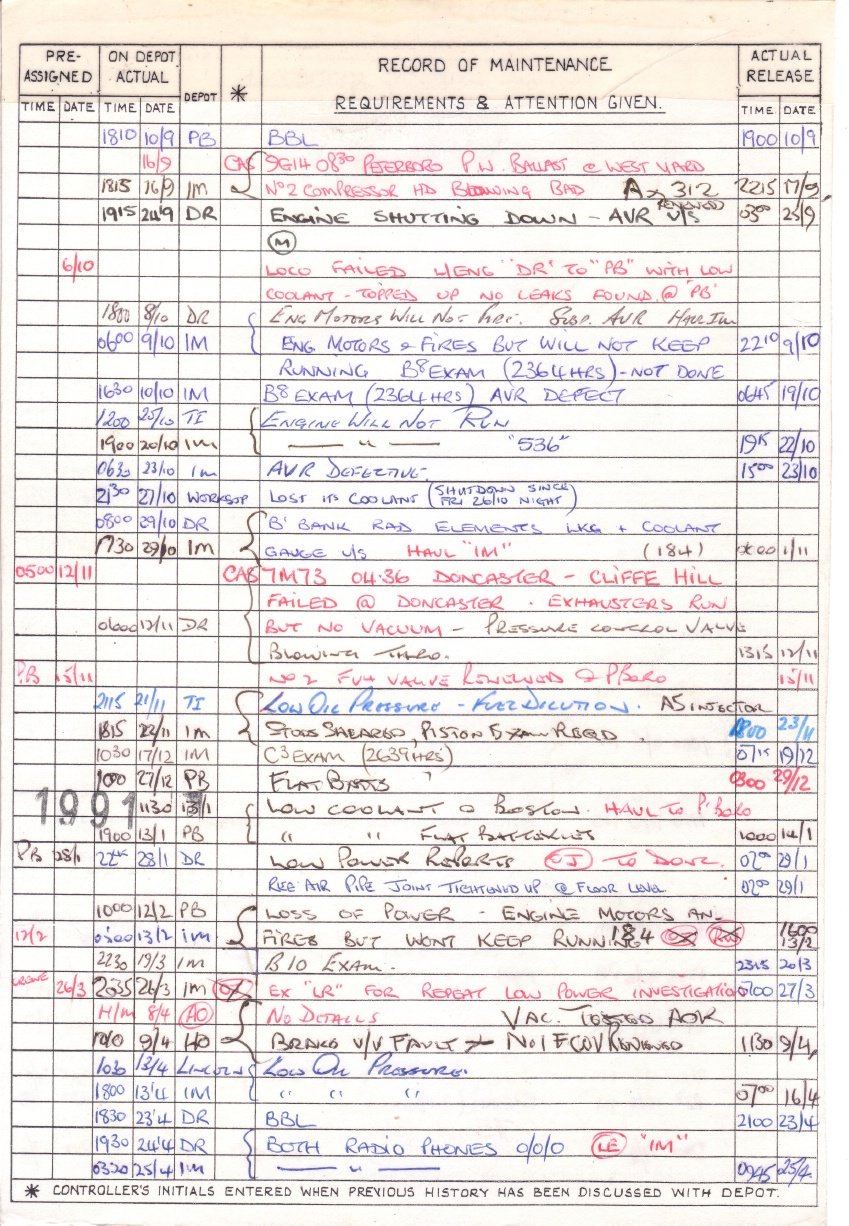 PRE- ON DEPOT RECORD OF MAINTENANCE ACTUAL
ASSIGNED ACTUAL DEPOT * REQUIREMENTS & ATTENTION GIVEN. RELEASE
TIME DATE TIME DATE TIME DATE
1810 10/9 PB BBL 1900 10/9
16/9 CAS 9G14 0830 PETERBORO P.W. BALLAST @ WEST YARD
1815 16/9 IM Nº2 COMPRESSOR HD BLOWING BAD 312 2215 17/9
1915 24/9 DR ENGINE SHUTTING DOWN - AVR U/S RENEWED 0300 25/9
M
6/10 LOCO FAILED L/ENG "DR" TO "PB" WITH LOW
COOLANT - TOPPED UP NO LEAKS FOUND @ 'PB'
1800 8/10 DR ENG MOTORS WILL NOT FIRE. SUSP. AVR HAUL IM
0600 9/10 IM ENG MOTORS & FIRES BUT WILL NOT KEEP 2210 9/10
RUNNING B8 EXAM (2364 HRS) - NOT DONE
1630 10/10 IM B8 EXAM (2364 HRS) AVR DEFECT 0645 19/10
1200 20/10 TI ENGINE WILL NOT RUN
1900 20/10 IM — " — "536" 1915 22/10
0630 23/10 IM AVR DEFECTIVE. 1500 23/10
2130 27/10 WORKSOP LOST ITS COOLANT (SHUTDOWN SINCE FRI 26/10 NIGHT)
0800 29/10 DR 'B' BANK RAD ELEMENTS LKG + COOLANT
1730 29/10 IM GAUGE U/S HAUL "IM" (184) 0600 1/11
0500 12/11 CAS 7M73 04.36 DONCASTER - CLIFFE HILL
FAILED @ DONCASTER. EXHAUSTERS RUN
0600 12/11 DR BUT NO VACUUM - PRESSURE CONTROL VALVE
BLOWING THRO. 1315 12/11
PB 15/11 Nº 2 FV4 VALVE RENEWED @ PBORO 15/11
2115 21/11 TI LOW OIL PRESSURE - FUEL DILUTION. A5 INJECTOR
1815 22/11 IM STUDS SHEARED, PISTON EXAM REQD. 1800 23/11
1030 17/12 IM C3 EXAM (2639 HRS) 0715 19/12
1000 27/12 PB FLAT BATTS 0300 29/12
1991 1130 13/1 LOW COOLANT @ BOSTON. HAUL TO P'BORO
1900 13/1 PB " " FLAT BATTERIES 1000 14/1
PB 28/1 28/1 DR LOW POWER REPORTS TO DONC. 0200 29/1
RISE AIR PIPE JOINT TIGHTENED UP @ FLOOR LEVEL 0200 29/1
1000 12/2 PB LOSS OF POWER - ENGINE MOTORS AN
12/2 0500 13/2 IM FIRES BUT WONT KEEP RUNNING 184 1600 13/2
2230 19/3 IM B10 EXAM. 2315 20/3
CREWE 26/3 2035 26/3 IM EX "LR" FOR REPEAT LOW POWER INVESTIGATION 0700 27/3
H/M 8/4 NO DETAILS VAC. TESTED AOK
1010 9/4 HO BRAKE V/V FAULT Nº1 FCOV RENEWED 1130 9/4
1030 13/4 LINCOLN LOW OIL PRESSURE.
1800 13/4 IM " " " 0700 16/4
1830 23/4 DR BBL 2100 23/4
1930 24/4 DR BOTH RADIO PHONES O/O/O LE "IM"
0320 25/4 IM — " — 0945 25/4
* CONTROLLER'S INITIALS ENTERED WHEN PREVIOUS HISTORY HAS BEEN DISCUSSED WITH DEPOT.